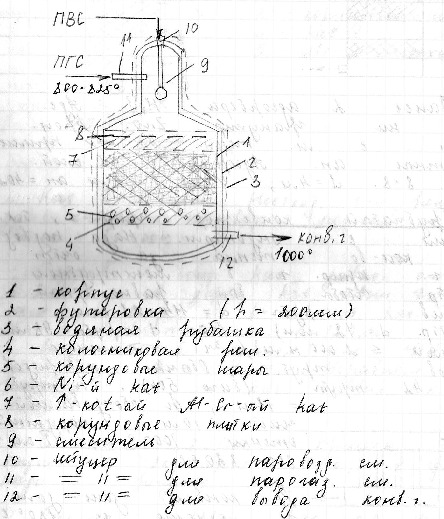 ПВС
10
11
ПГС
9
800-825°
8
1
7
2
3
5
4
конв. г.
12
1000°
1 - корпус
2 - футеровка (h = 200мм)
3 - водяная рубашка
4 - колосниковая реш.
5 - корундовые шары
6 - Ni-й kat
7 - t-кот-ой Al-Cr-ой kat
8 - корундовые плитки
9 - смеситель
10 - штуцер для паровозд. см.
11 - = 11 = для парогаз. см.
12 - = 11 = для вывода конв. г.